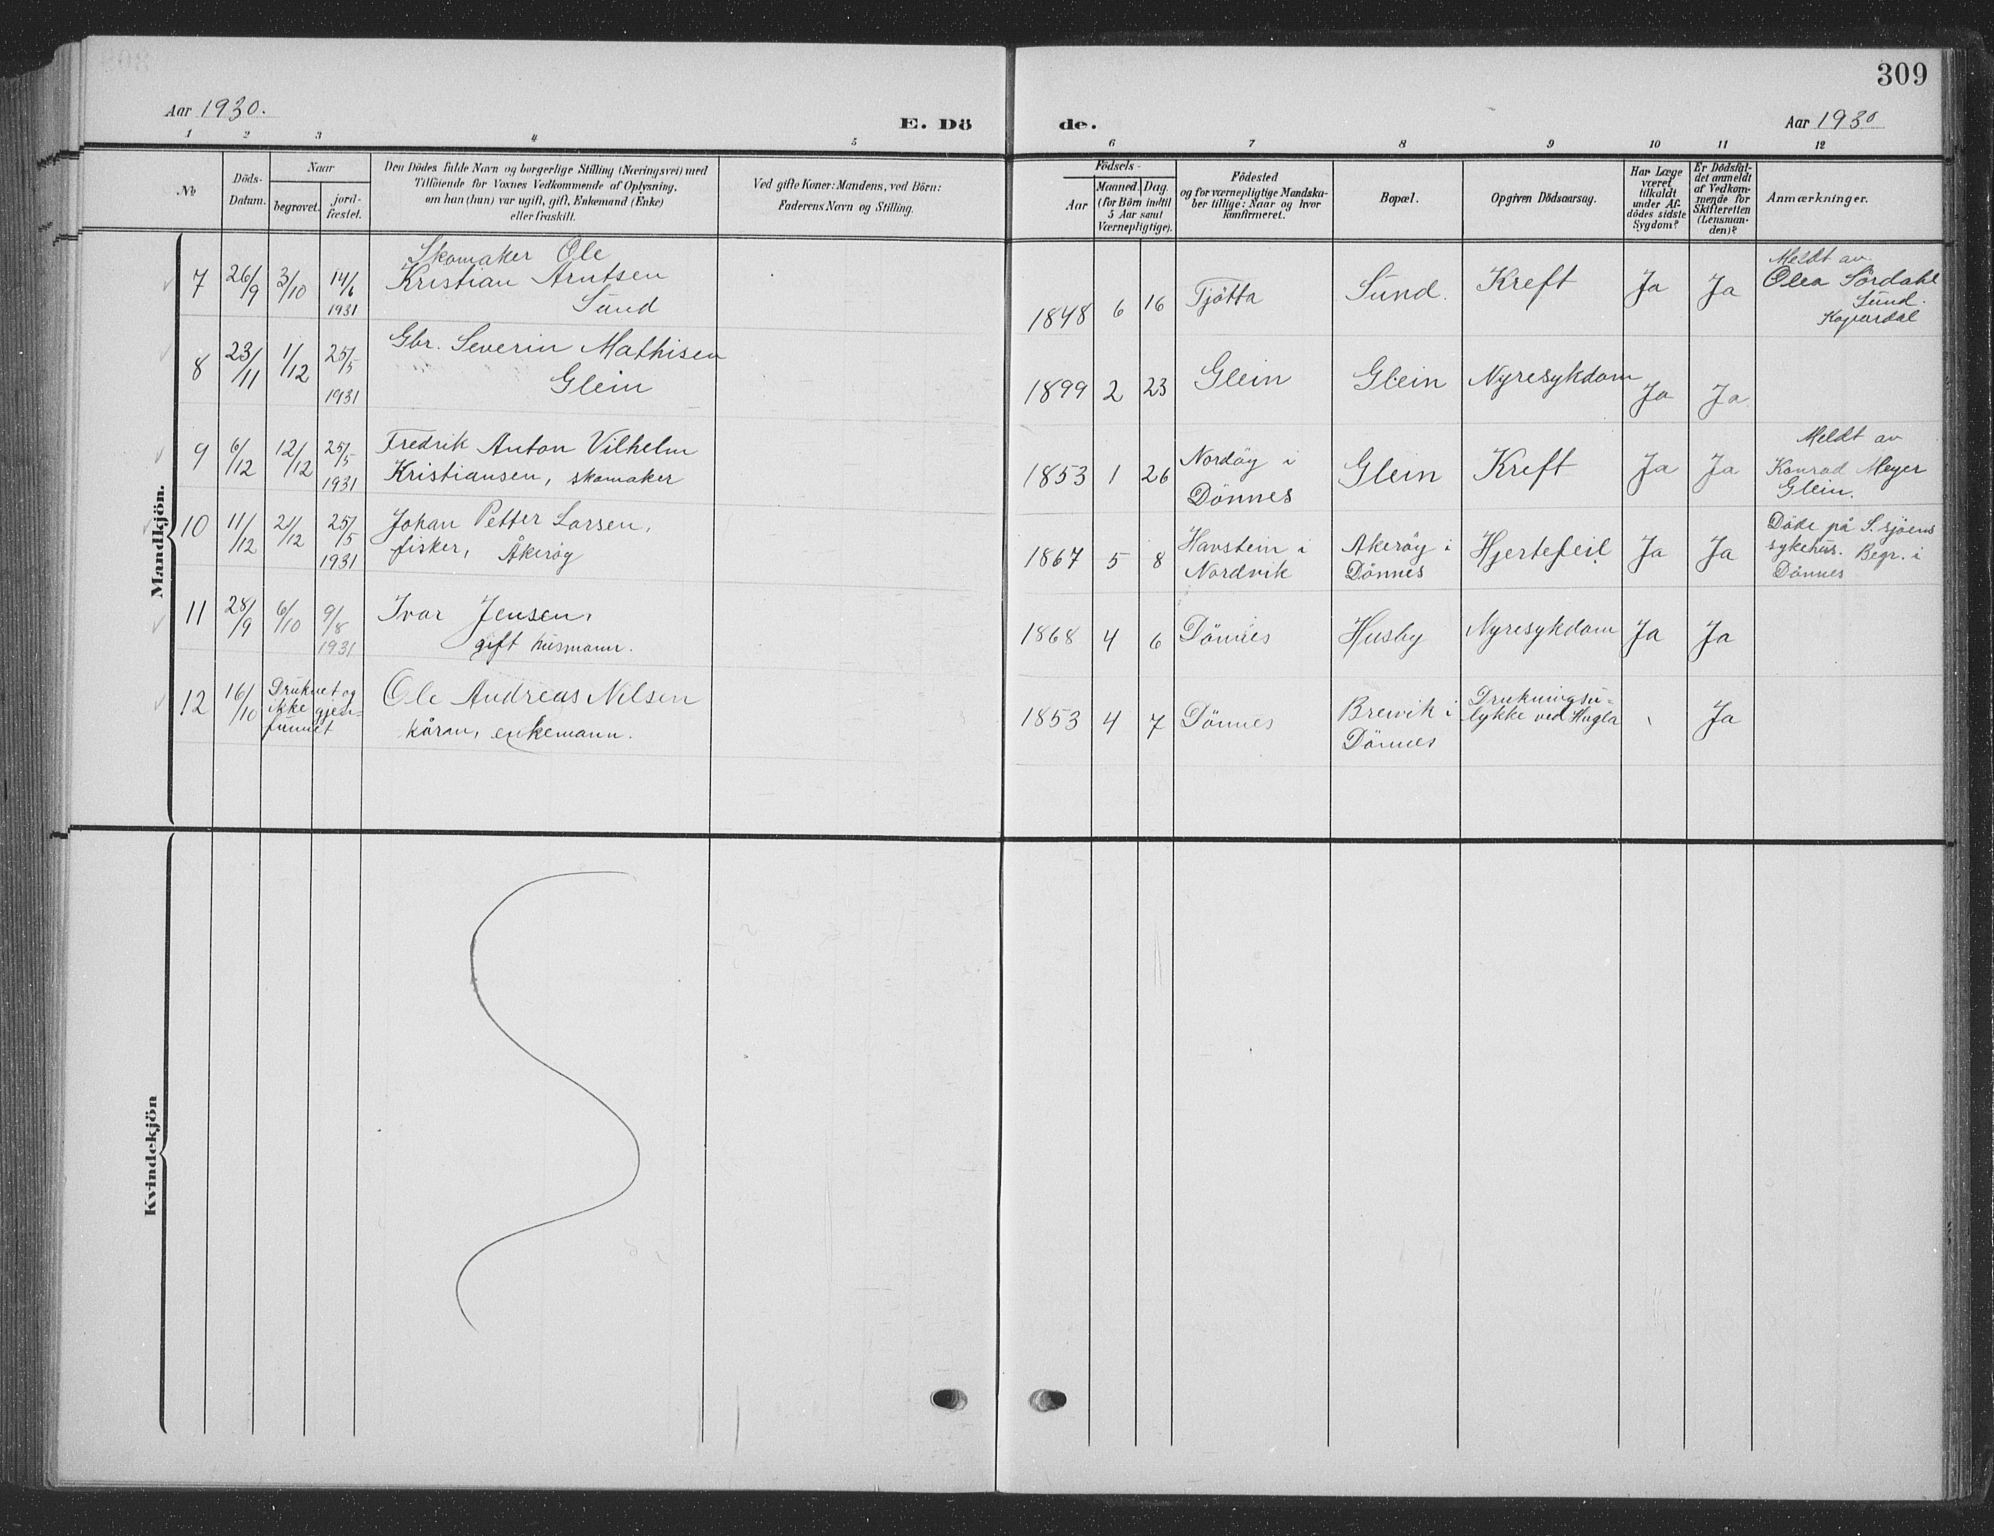 309
Aar 1930.
E. Dö
de.
Aar 1930
1 2 3 4 5 6 7 8 9 10 11 12
No
Döds-
Datum.
Naar
begrovet.
jord-
fæstet.
Den Dödes fulde Navn og borgerlige Stilling (Næringsvei) med
Tilföiende for Voxnes Vedkommende af Oplysning,
om han (hun) var ugift, gift, Enkemand (Enke)
eller fraskilt.
Ved gifte Koner: Mandens, ved Börn:
Faderens Navn og Stilling.
Födsels-
Aar
Maaned. Dag.
(for Börn indtil
5 Aar samt
Værnepligtige).
Födested
og for værnepligtige Mandska-
ber tillige: Naar og hvor
konfirmeret.
Bopæl.
Opgiven Dödsaarsag.
Har Læge
været
tilkaldt
under Af-
dödes sidste
Sygdom?
Er Dödsfal-
det anmeldt
af Vedkom-
mende for
Skifteretten
(Lensman-
den)?
Anmærkninger.
Mandkjön.
7 26/9 3/10 14/6 1931
Skomaker Ole
Kristian Arntsen
Sund
1848 6 16 Tjøtta Sund. Kreft Ja Ja
Meldt av
Olea Sördahl
Sund.
Kopardal
8 23/11 1/12 25/5 1931
Gbr. Severin Mathisen
Glein
1899 2 23 Glein Glein Nyresykdom Ja Ja
9 6/12 12/12 25/5 1931
Fredrik Anton Vilhelm
Kristiansen, skomaker
1853 1 26 Nordöy i
Dönnes
Glein Kreft Ja Ja
Meldt av
Konrad Meyer
Glein.
10 11/12 21/12 25/5 1931
Johan Petter Larsen,
fisker, Åkerøy
1867 5 8 Havstein i
Nordvik
Åkerøy i
Dönnes
Hjertefeil Ja Ja
Döde på S. sjøens
sykehus. Begr. i
Dönnes
11 28/9 6/10 9/8 1931
Ivar Jensen,
gift husmann.
1868 4 6 Dönnes Husby Nyresykdom Ja Ja
12 16/10 Druknet og
ikke gjen-
funnet
Ole Andreas Nilsen
kåram, enkemann.
1853 4 7 Dönnes Breivik i
Dönnes
Drukningsu-
lykke ved Hugla
Ja
Kvindekjön